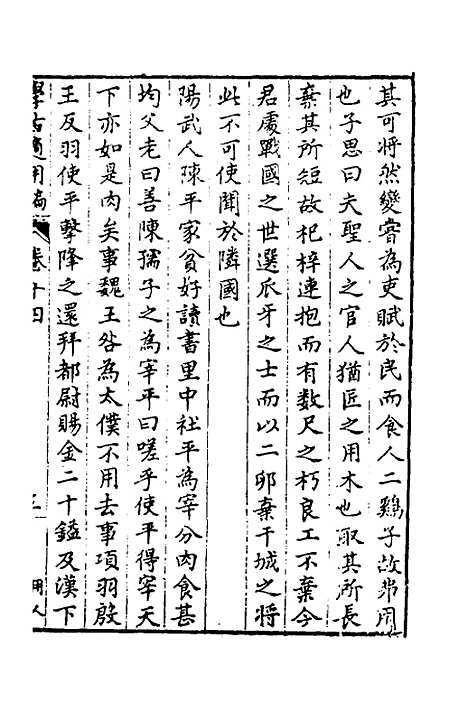 其可將然變嘗為吏賦於民而食人二鷄子故弗用
也子思曰夫聖人之官人猶匠之用木也取其所長
棄其所短故杞梓連抱而有数尺之朽良工不棄今
君處戰國之世選爪牙之士而以二卵棄干城之將
此不可使聞於隣國也
陽武人陳平家貧好讀書里中社平為宰分肉食甚
均父老曰善陳孺子之為宰平曰嗟乎使平得宰天
下亦如是肉矣事魏王咎為太僕不用去事項羽殷
王反羽使平擊降之還拜都尉賜金二十鎰及漢下
學古適用編 卷十四 三 用人